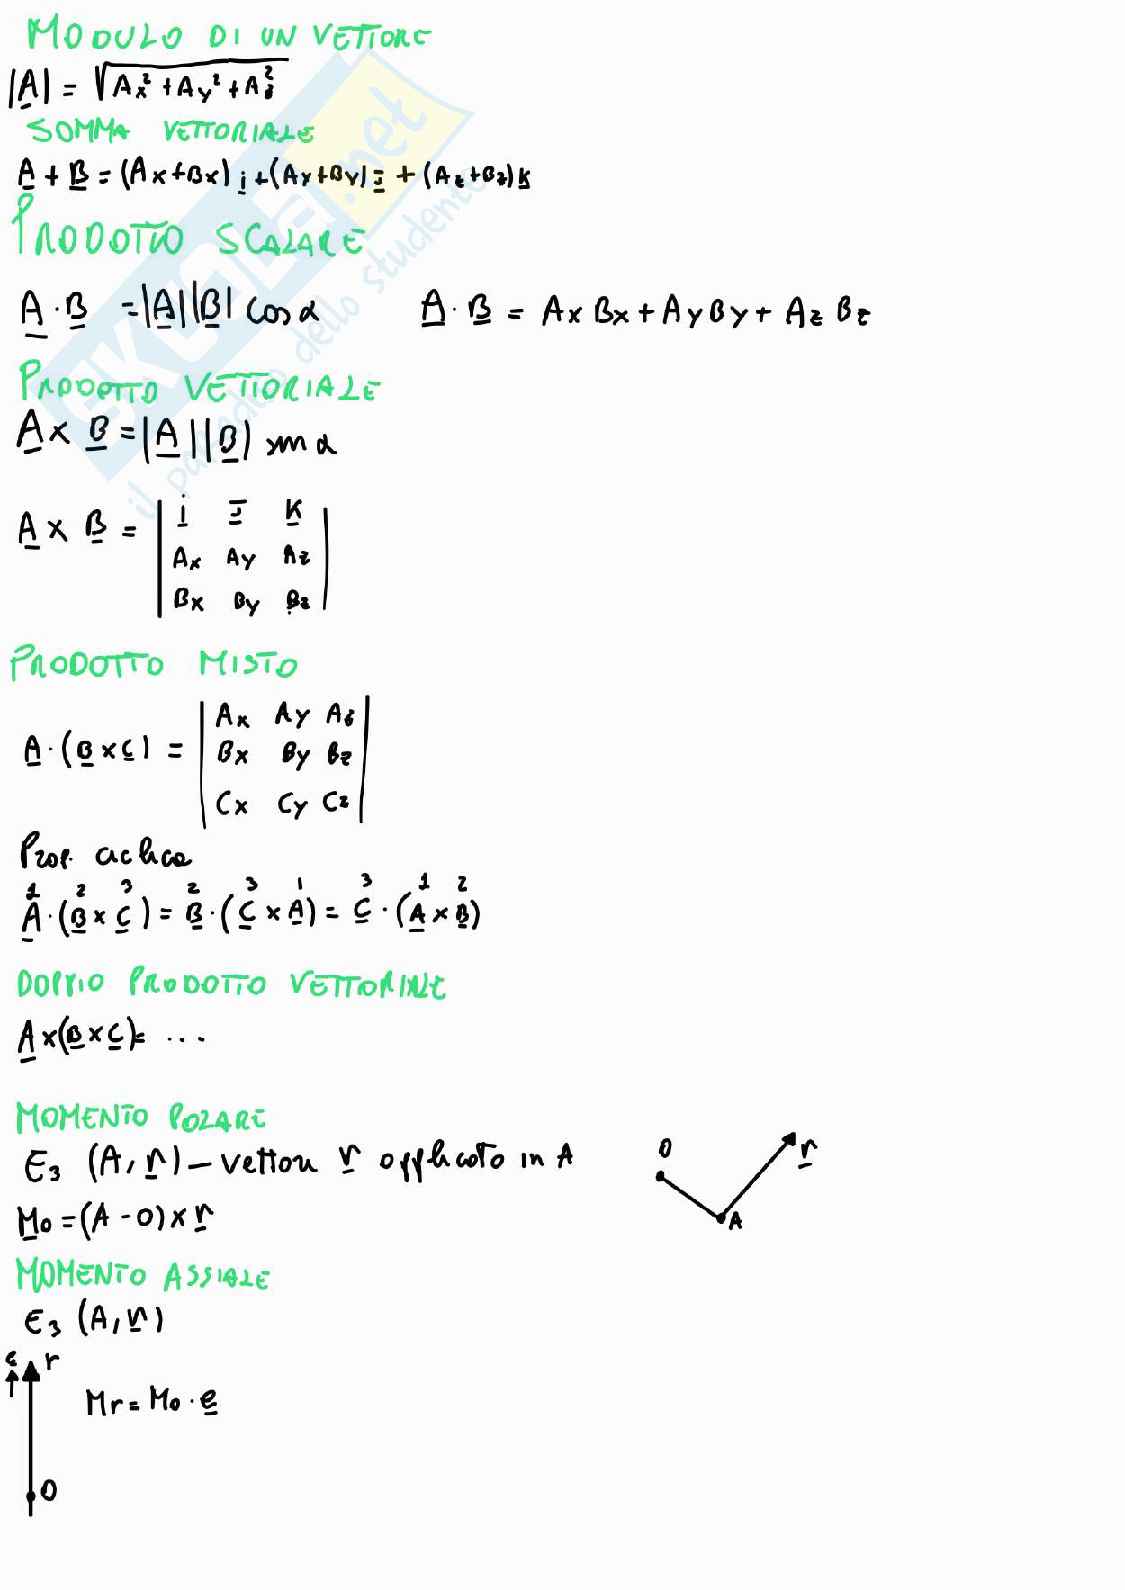 MODULO DI UN VETTORE
|A| = √Ax² + Ay² + Az²
SOMMA VETTORIALE
A + B = (Ax+Bx) i + (Ay+By) J + (Az+Bz) K
PRODOTTO SCALARE
A · B = |A| |B| cos α A · B = Ax Bx + Ay By + Az Bz
PRODOTTO VETTORIALE
A x B = |A| |B| sin α
A x B = | i J K |
Ax Ay Az
Bx By Bz
PRODOTTO MISTO
A · (B x C) = | Ax Ay Az |
Bx By Bz
Cx Cy Cz
Prop. ciclica
1 2 3 2 3 1 3 1 2
A · (B x C) = B · (C x A) = C · (A x B)
DOPPIO PRODOTTO VETTORIALE
A x (B x C) = ...
MOMENTO POLARE
E3 (A, r) – vettore r applicato in A
O r
A
Mo = (A - O) x r
MOMENTO ASSIALE
E3 (A, r)
e r
Mr = Mo · e
O
SKUOLA.net
il paradiso dello studente